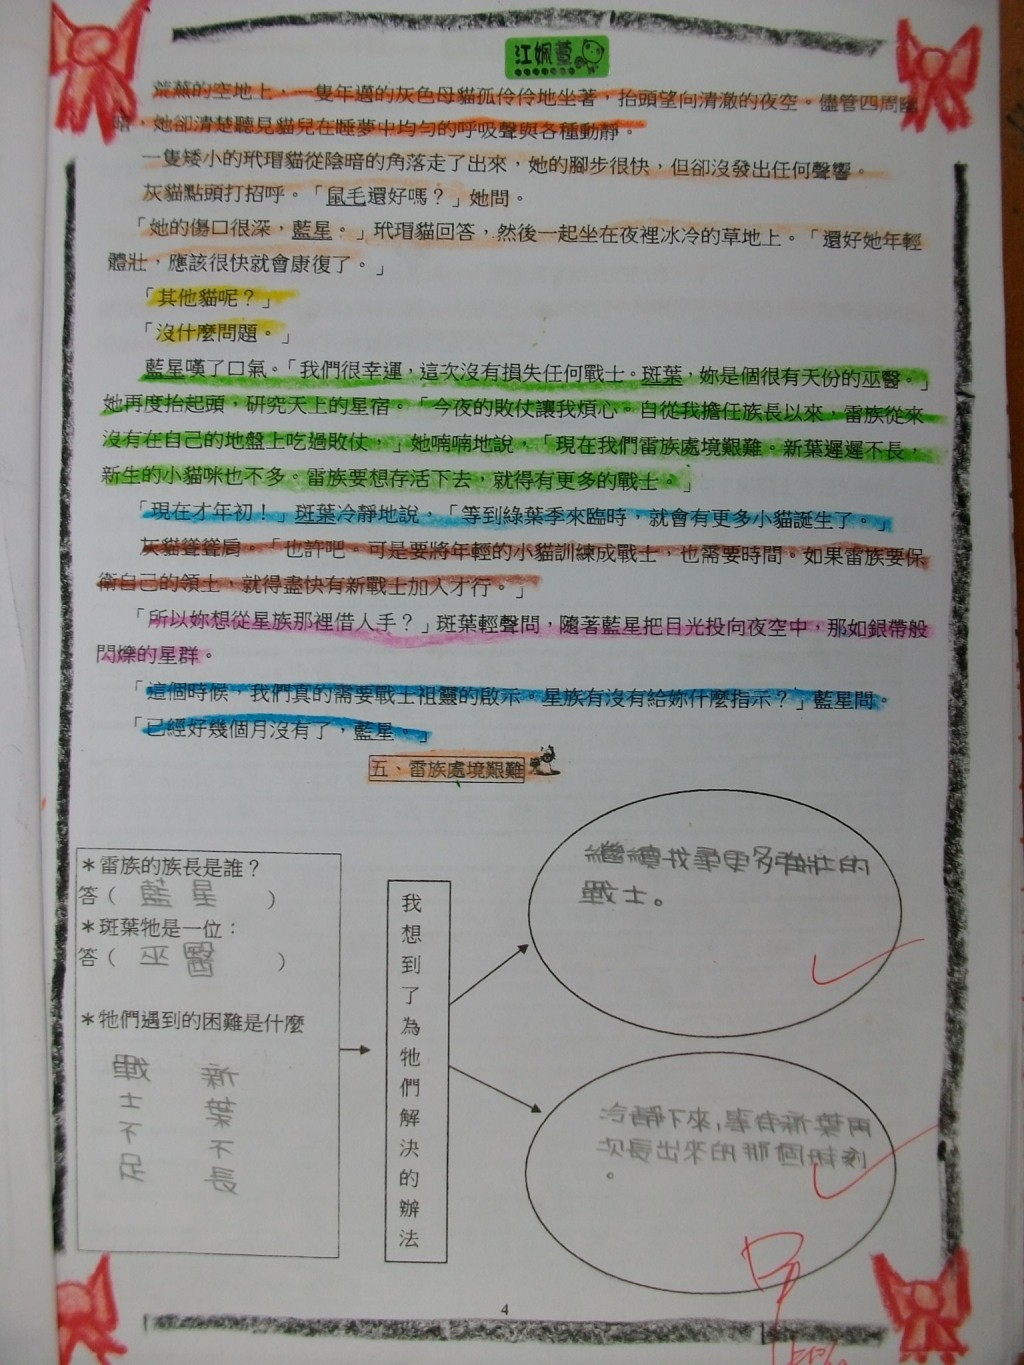 江姵萱
荒蕪的空地上，一隻年邁的灰色母貓孤伶伶地坐著，抬頭望向清澈的夜空。儘管四周幽
暗，她卻清楚聽見貓兒在睡夢中均勻的呼吸聲與各種動靜。
一隻矮小的玳瑁貓從陰暗的角落走了出來，她的腳步很快，但卻沒發出任何聲響。
灰貓點頭打招呼。「鼠毛還好嗎？」她問。
「她的傷口很深，藍星。」玳瑁貓回答，然後一起坐在夜裡冰冷的草地上。「還好她年輕
體壯，應該很快就會康復了。」
「其他貓呢？」
「沒什麼問題。」
藍星嘆了口氣。「我們很幸運，這次沒有損失任何戰士。斑葉，妳是個很有天份的巫醫。」
她再度抬起頭，研究天上的星宿。「今夜的敗仗讓我煩心。自從我擔任族長以來，雷族從來
沒有在自己的地盤上吃過敗仗，」她喃喃地說，「現在我們雷族處境艱難。新葉遲遲不長，
新生的小貓咪也不多。雷族要想存活下去，就得有更多的戰士。」
「現在才年初！」斑葉冷靜地說，「等到綠葉季來臨時，就會有更多小貓誕生了。」
灰貓聳聳肩。「也許吧。可是要將年輕的小貓訓練成戰士，也需要時間。如果雷族要保
衛自己的領土，就得盡快有新戰士加入才行。」
「所以妳想從星族那裡借人手？」斑葉輕聲問，隨著藍星把目光投向夜空中，那如銀帶般
閃爍的星群。
「這個時候，我們真的需要戰士祖靈的啟示。星族有沒有給妳什麼指示？」藍星問。
「已經好幾個月沒有了，藍星。」
五、雷族處境艱難
＊雷族的族長是誰？
答（ 藍星 ）
＊斑葉牠是一位：
答（ 巫醫 ）
＊牠們遇到的困難是什麼
戰士不足
新葉不長
我想到了為牠們解決的辦法
繼續找尋更多強壯的
戰士。
冷靜下來，等待新葉再
次長出來的那個時刻
。
4